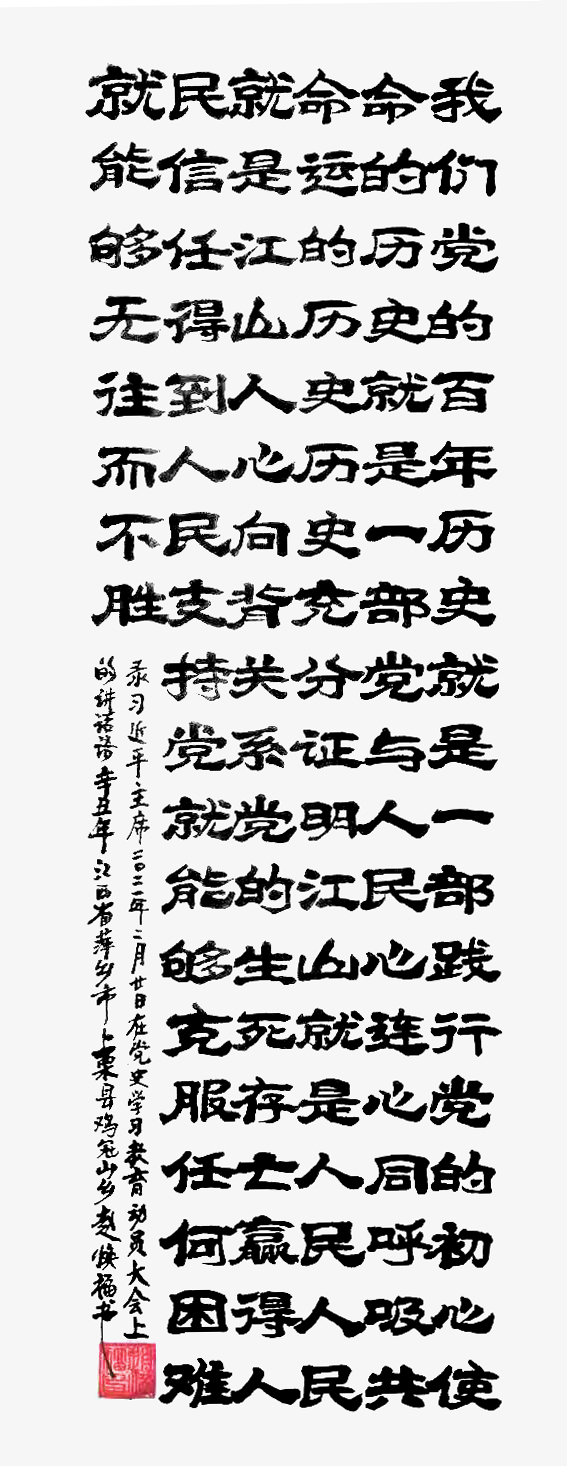 我们党的百年历史就是一部践行党的初心使
命的历史就是一部党与人民心连心同呼吸共
命运的历史历史充分证明江山就是人民人民
就是江山人心向背关系党的生死存亡赢得人
民信任得到人民支持党就能够克服任何困难
就能够无往而不胜
录习近平主席二〇二一年二月廿日在党史学习教育动员大会上
的讲话语辛丑年江西省萍乡市上栗县鸡冠山乡赵焕福书